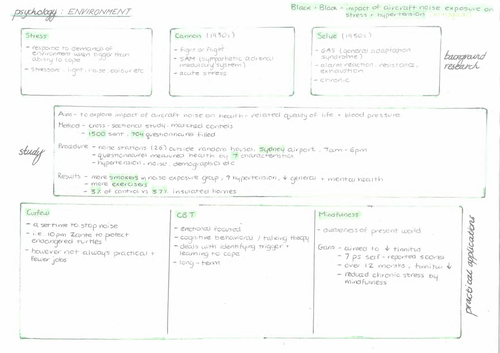 psychology : ENVIRONMENT
Black + Black - impact of aircraft noise exposure on
stress + hypertension
Stress:
- response to demands of
environment when bigger than
ability to cope
- stressors - light, noise, odour etc
Cannon (1930s)
- fight or flight
- SAM (sympathetic adrenal
medullary system)
- acute stress
Selye (1950s)
- GAS (general adaptation
syndrome)
- alarm reaction, resistance,
exhaustion
- chronic
background
research
study
Aim - to explore impact of aircraft noise on health - related quality of life + blood pressure
Method - cross-sectional study, matched controls
- 1500 sent, 704 questionnaires used
Procedure - noise stations (26) outside random houses, Sydney airport, 7am - 6pm
- questionnaires measured health by 7 characteristics
- hypertension, noise, demographics etc
Results - more smokers in noise exposure group, ↑ hypertension, ↓ general + mental health
- more exercisers
- 3% of control vs 37% insulated homes
Curfew
- a set time to stop noise
- i.e. 10pm
endangered turtles
- however not always practical +
fewer jobs
CBT
- emotional focused
- cognitive behavioural / talking therapy
- deals with identifying trigger +
learning to cope
- long-term
Mindfulness
- awareness of present world
Gans - aimed to ↓ tinnitus
- 7 ps self-reported scores
- over 12 months, tinnitus ↓
- reduced chronic stress by
mindfulness
practical applications